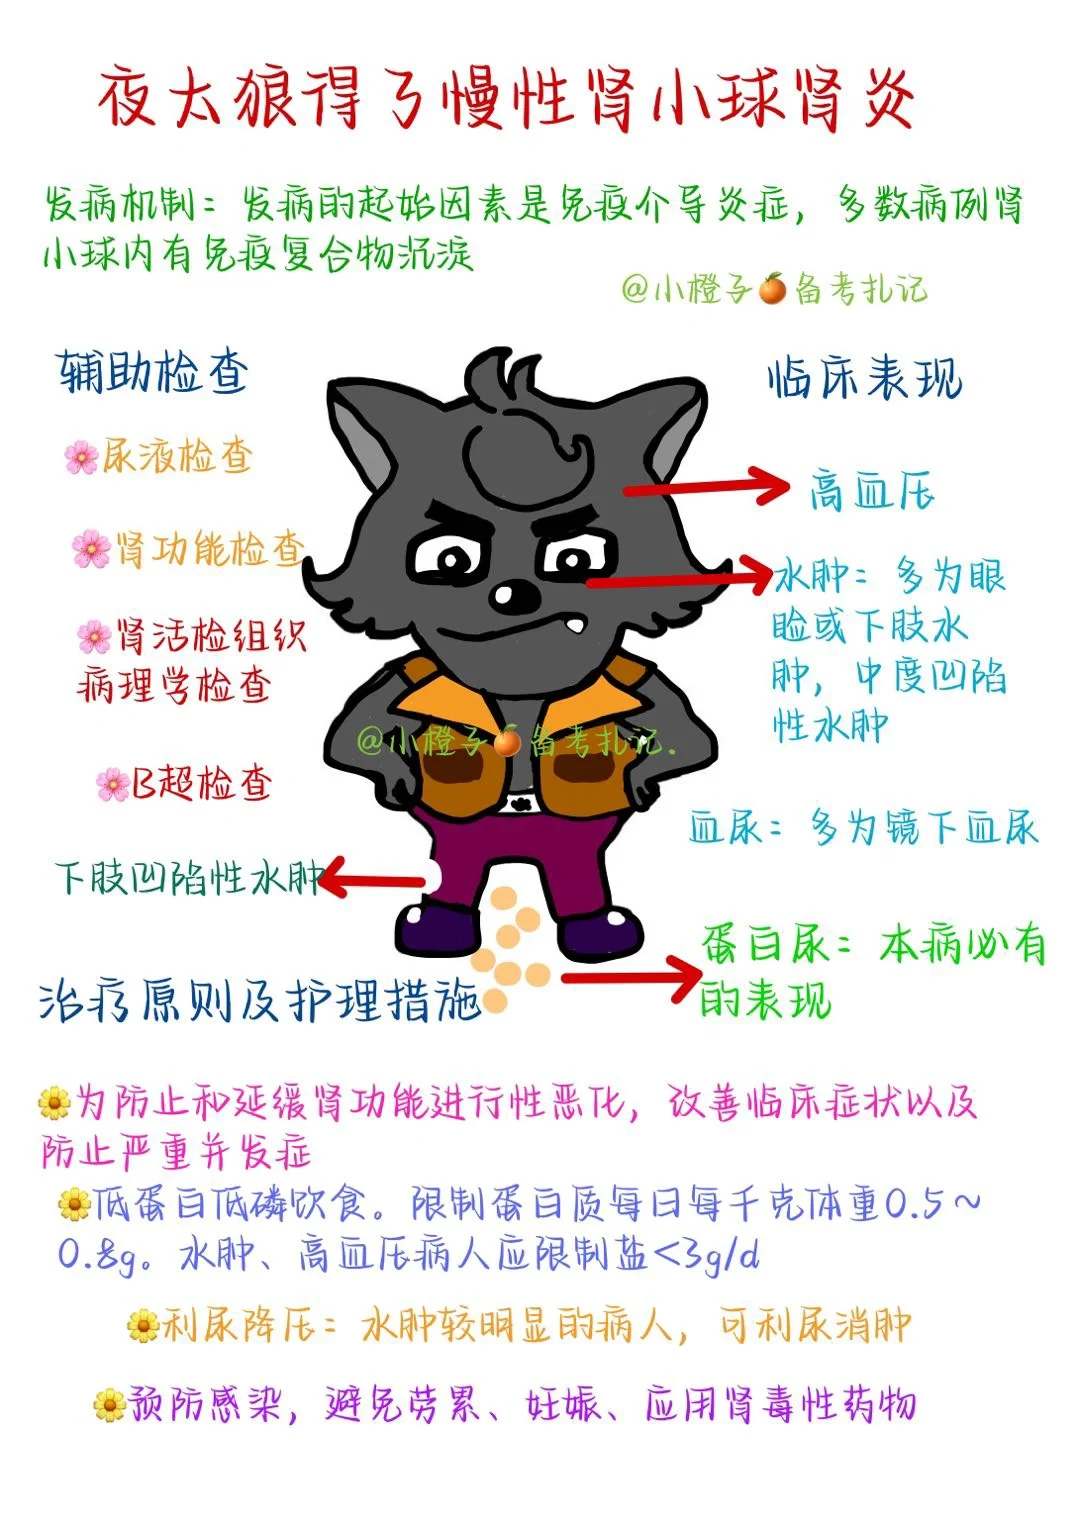 夜太狼得了慢性肾小球肾炎
发病机制：发病的起始因素是免疫介导炎症，多数病例肾
小球内有免疫复合物沉淀
@小橙子🍊备考扎记
辅助检查
🌸尿液检查
🌸肾功能检查
🌸肾活检组织
病理学检查
🌸B超检查
下肢凹陷性水肿
临床表现
高血压
水肿：多为眼
睑或下肢水
肿，中度凹陷
性水肿
@小橙子🍊备考扎记.
血尿：多为镜下血尿
蛋白尿：本病必有
的表现
治疗原则及护理措施
🌼为防止和延缓肾功能进行性恶化，改善临床症状以及
防止严重并发症
🌼低蛋白低磷饮食。限制蛋白质每日每千克体重0.5～
0.8g。水肿、高血压病人应限制盐<3g/d
🌼利尿降压：水肿较明显的病人，可利尿消肿
🌼预防感染，避免劳累、妊娠、应用肾毒性药物